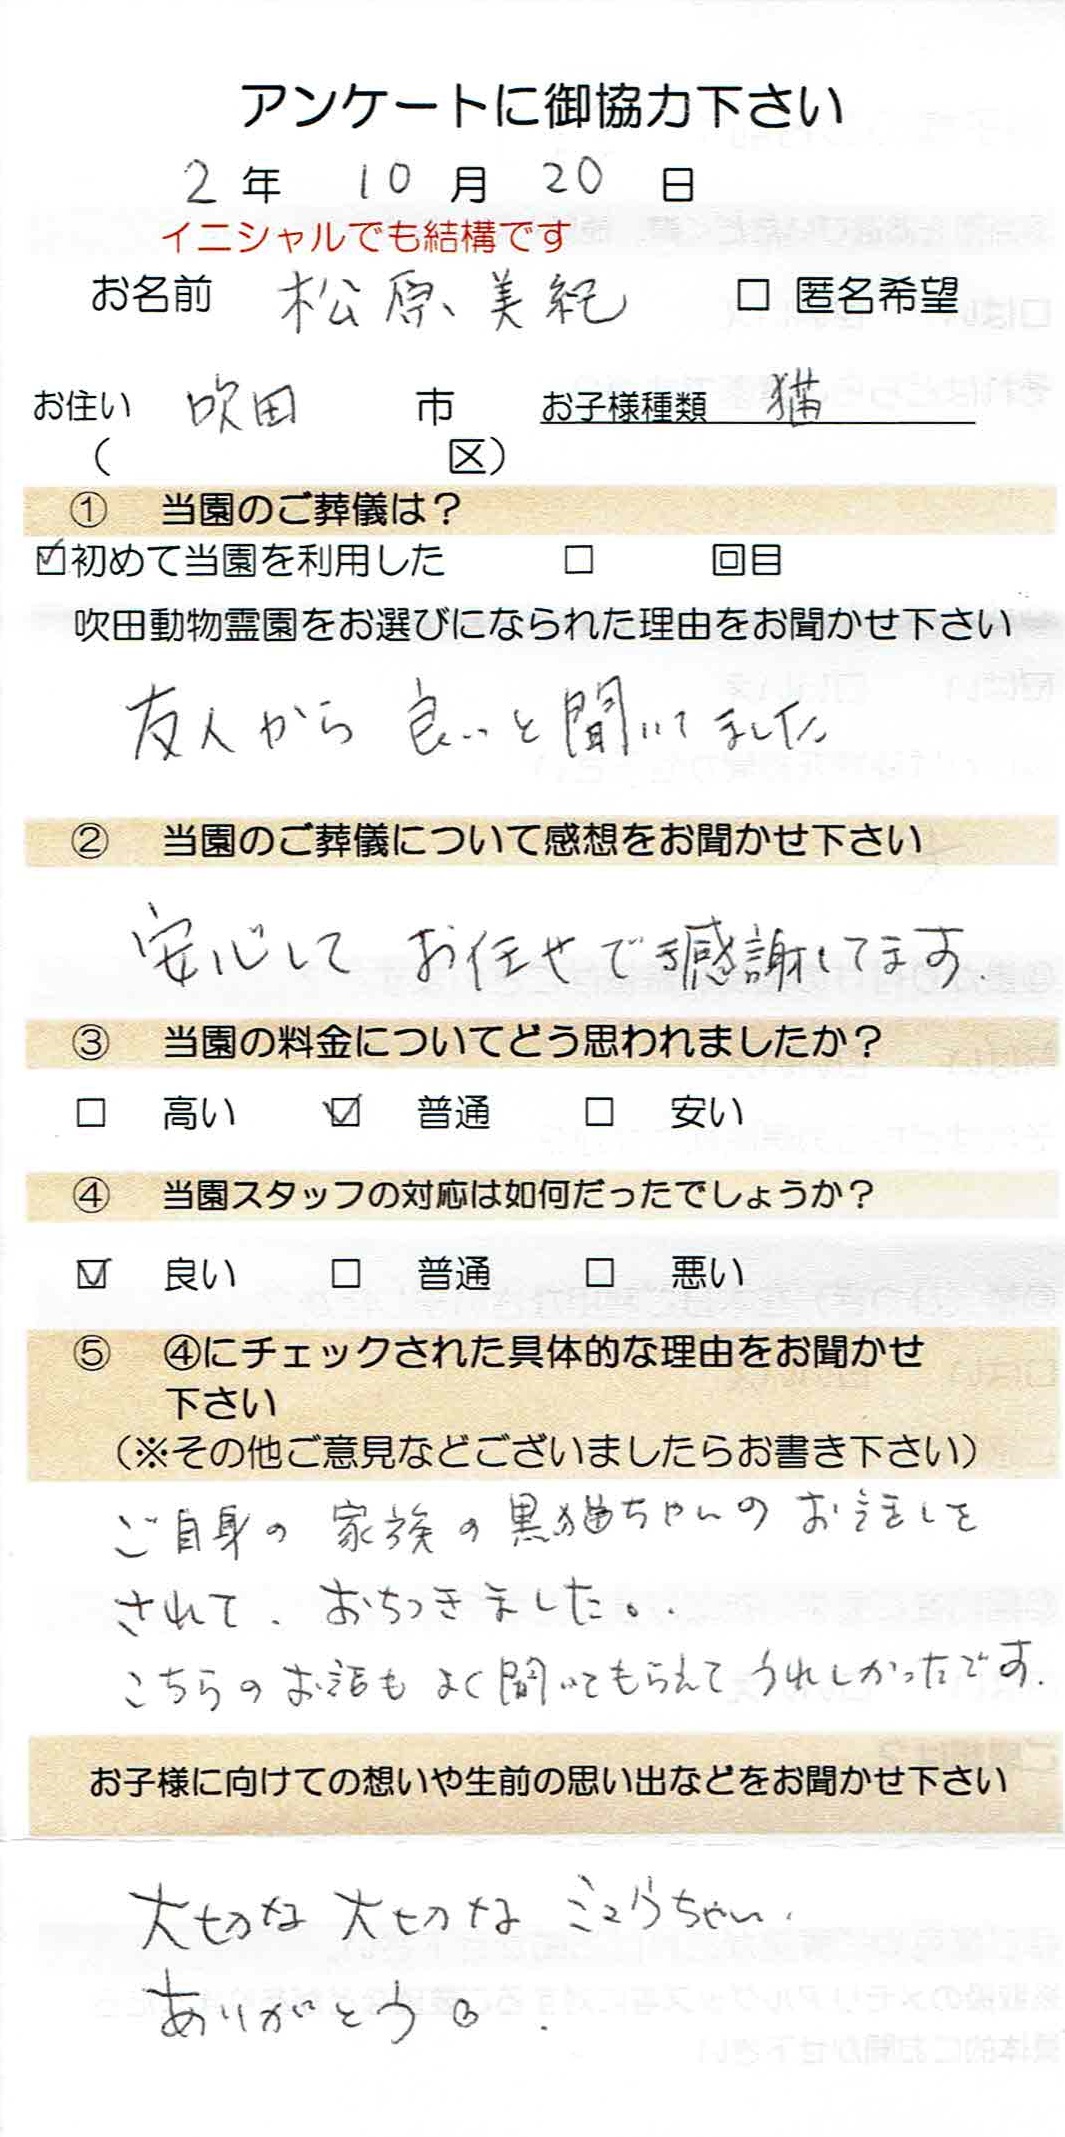 アンケートに御協力下さい
2 年 10 月 20 日
イニシャルでも結構です
お名前 松原 美紀 □ 匿名希望
お住い 吹田 市 お子様種類 猫
( 区)
① 当園のご葬儀は？
☑初めて当園を利用した □ 回目
吹田動物霊園をお選びになられた理由をお聞かせ下さい
友人から 良いと聞いてました
② 当園のご葬儀について感想をお聞かせ下さい
安心して お任せでき感謝してます.
③ 当園の料金についてどう思われましたか？
□ 高い ☑ 普通 □ 安い
④ 当園スタッフの対応は如何だったでしょうか？
☑ 良い □ 普通 □ 悪い
⑤ ④にチェックされた具体的な理由をお聞かせ
下さい
（※その他ご意見などございましたらお書き下さい）
ご自身の 家族の黒猫ちゃんの お話しを
されて、おちつきました。
こちらの お話も よく聞いてもらえて うれしかったです.
お子様に向けての想いや生前の思い出などをお聞かせ下さい
大切な 大切な ちゃん.
ありがとう